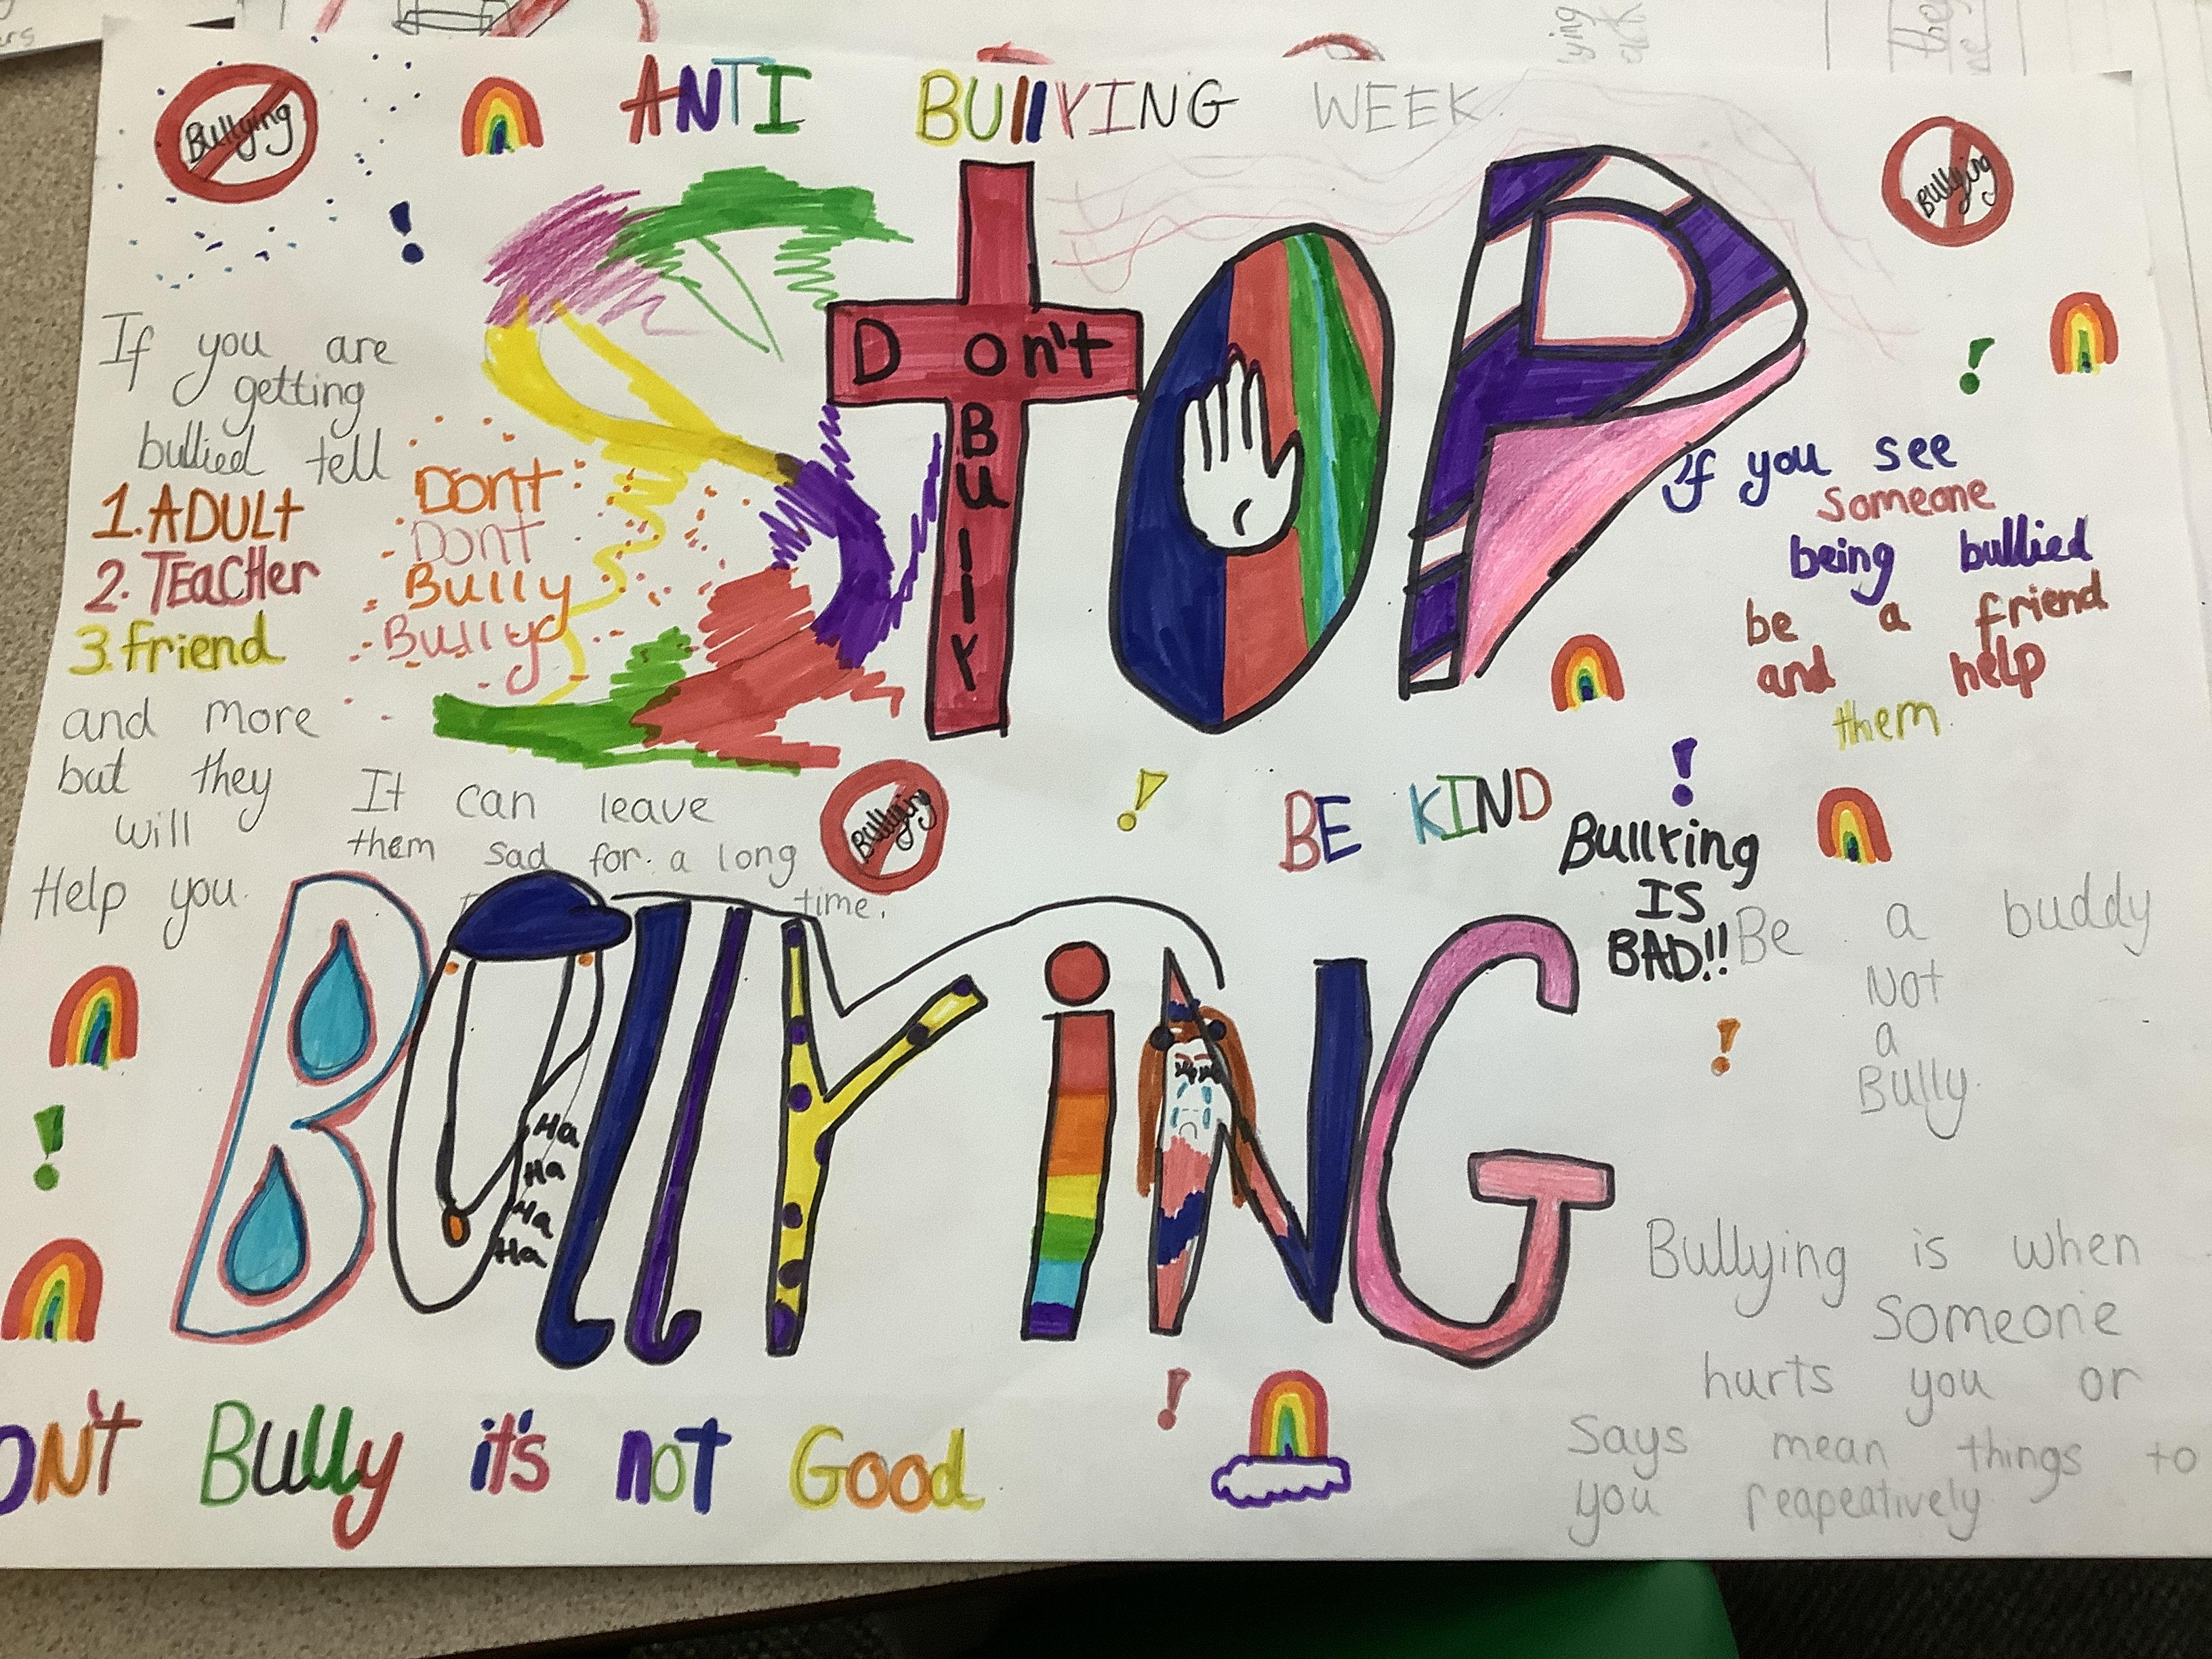 ANTI BULLYING WEEK.
Bullying
Bullying
STOP
Don't
BULLY
If you are
getting
bullied tell
1. ADULT
2. TEACHER
3. friend
and more
but they
will
Help you.
Dont
Dont
Bully
Bully
If you see
someone
being bullied
be a friend
and help
them.
It can leave
them sad for a long
time.
Bullying
BE KIND
Bullying
IS
BAD!!
Be a buddy
Not
a
Bully.
BullYiNG
Ha
Ha
Ha
Ha
Bullying is when
someone
hurts you or
says mean things to
you reapeatively
ON'T Bully it's not Good